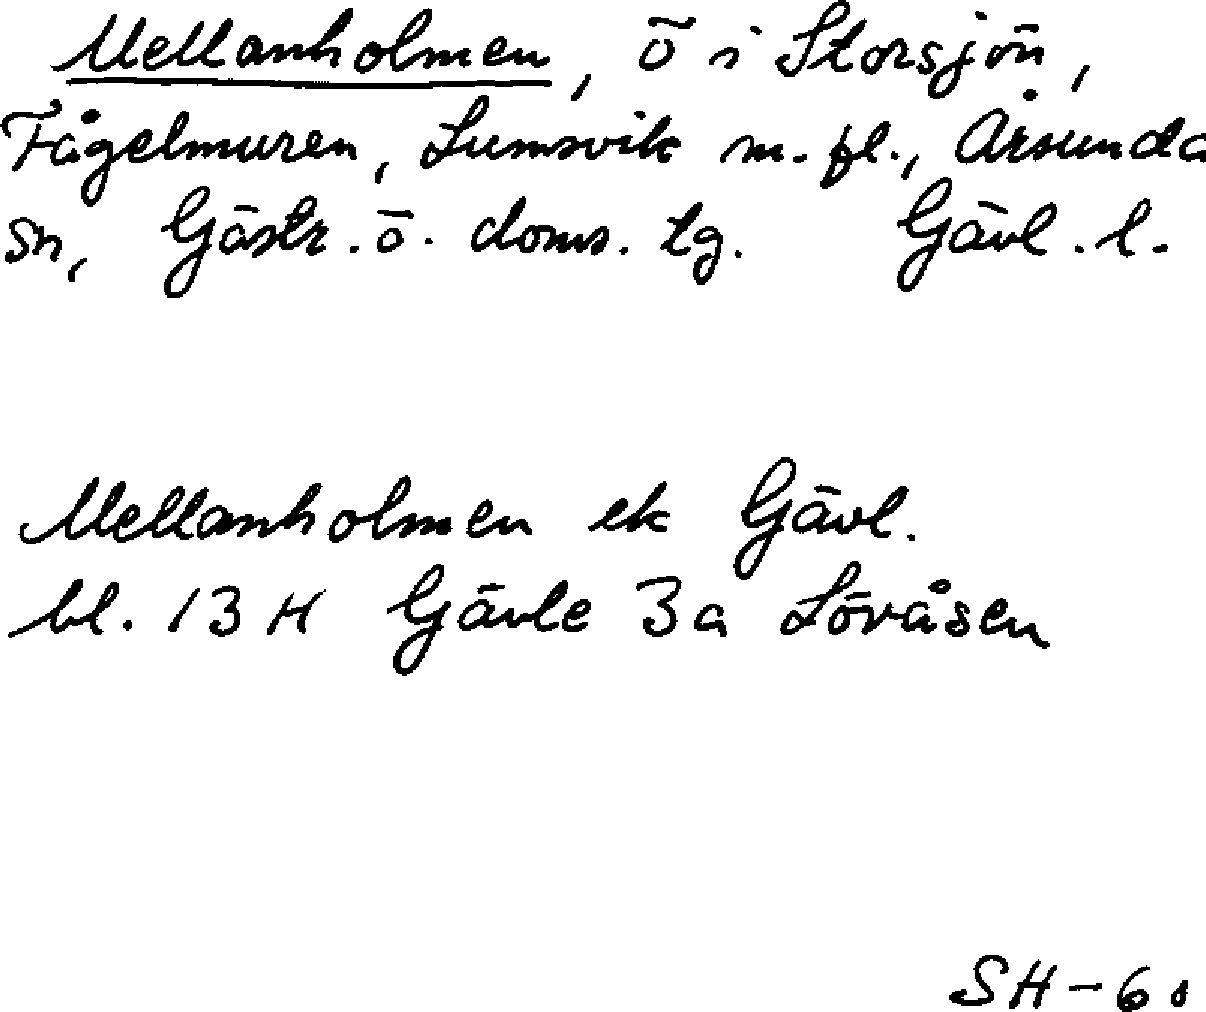 Mellanholmen, ö i Storsjön,
Fågelmuren, Lumsvik m. fl., Årsunda
sn, Gästr. ö. doms. tg. Gävl. l.
Mellanholmen ek Gävl.
bl. 13 H Gävle 3a Lövåsen
SH-60